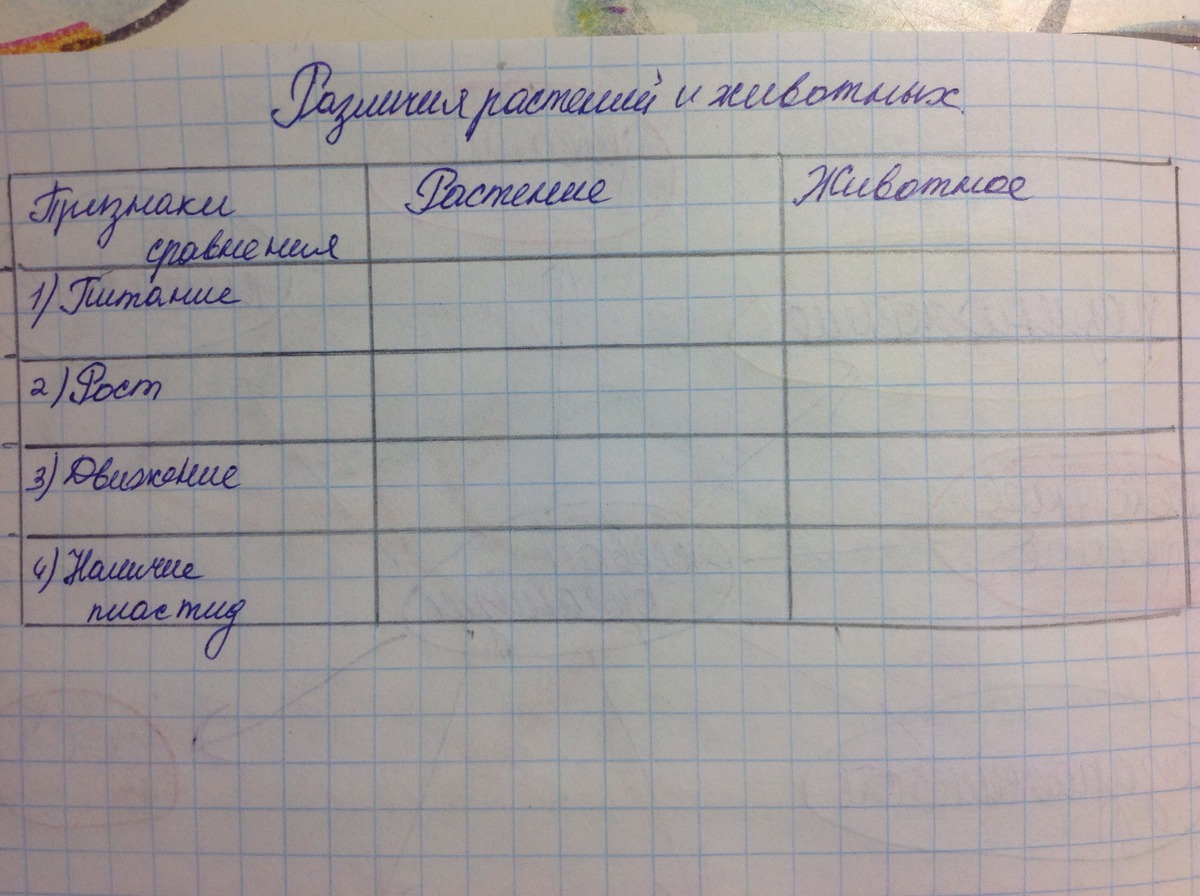 Различия растений и животных
Признаки сравнения
Растение
Животное
1) Питание
2) Рост
3) Движение
4) Наличие
пластид